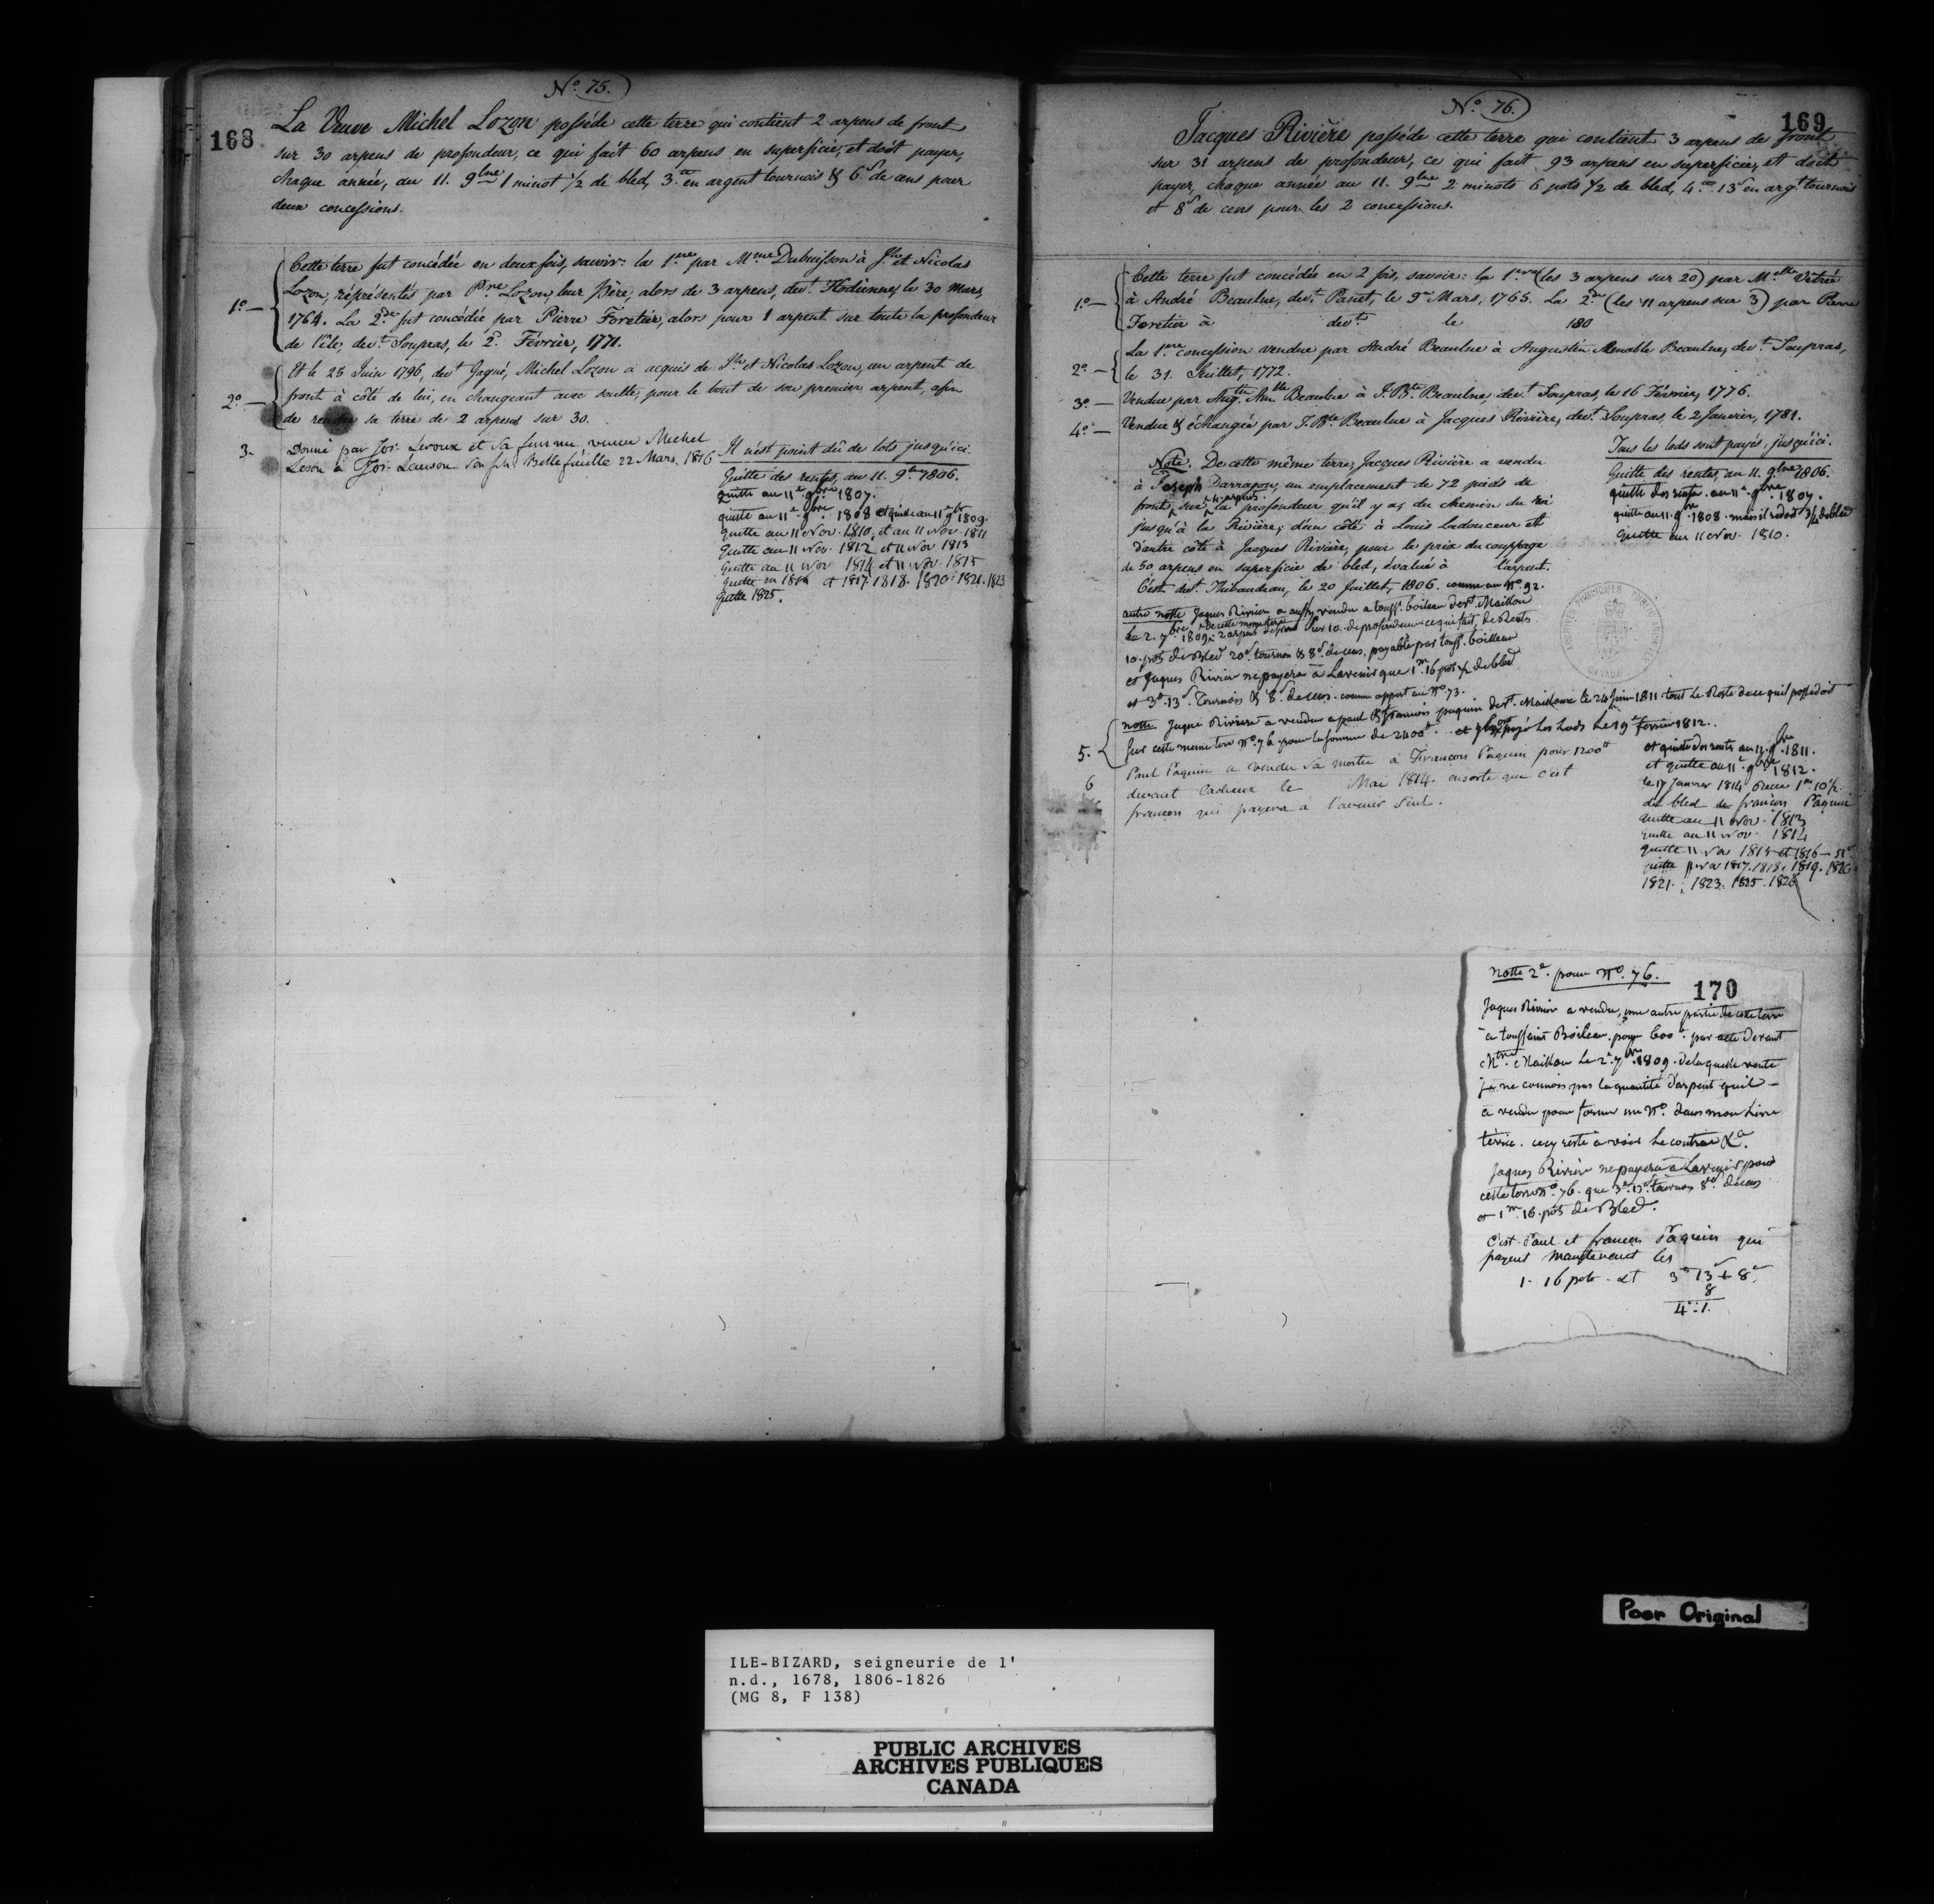 No. 75.
168
La Veuve Michel Lozon possède cette terre qui contient 2 arpens de front
sur 30 arpens de profondeur, ce qui fait 60 arpens en superficie, et doit payer,
chaque année, au 11. 9bre 1 minot ½ de bled, 3.tt en argent tournois & 6.d de cens pour
deux concessions.
1º — Cette terre fut concédée en deux fois, savoir: la 1ere par Mme Dubuisson à Jh et Nicolas
Lozon, réprésentés par Lozon, leur Père, alors de 3 arpens, devt Hodienne, le 30 Mars,
1764. La 2de fut concédée par Pierre Foretier, alors pour 1 arpent sur toute la profondeur
de l'île, devt Soupras, le 2. Février, 1771.
2º — Et le 25 Juin 1796, devt Gagné, Michel Lozon a acquis de Jh et Nicolas Lozon, un arpent de
front à côté de lui, en changeant avec soulte, pour le bout de son premier arpent, afin
de rendre sa terre de 2 arpens sur 30.
3. Donné par Jos. Leroux et sa femme veuve Michel
Loson à Jos. Lauson son fils Bellefeuille 22 Mars 1816
Il n'est point dû de lots jusqu'ici.
Quitte des rentes, au 11. 9bre 1806.
quitte au 11e 9bre 1807.
quitte au 11e 9bre 1808 et quitte au 11e 9br 1809.
quitte au 11 Nov. 1810, et au 11 Nov. 1811
Quitte au 11 Nov. 1812 et 11 Nov 1813
Quitte au 11 Nov 1814 et 11 Nov. 1815
quitte en 1816 et 1817. 1818. 1820. 1821. 1823
quitte 1825.
No. 76.
169
Jacques Rivière possède cette terre qui contient 3 arpens de front
sur 31 arpens de profondeur, ce qui fait 93 arpens en superficie, et doit
payer, chaque année au 11. 9bre 2 minots 6 pots ½ de bled, 4.tt 13s en argt tournois
et 8d de cens pour les 2 concessions.
1º — Cette terre fut concédée en 2 fois, savoir: la 1ere (les 3 arpens sur 20) par Melle Vitrée
à André Beaulne, devt Panet, le 9 Mars, 1765. La 2de (les 11 arpens sur 3) par Pierre
Foretier à devt le 180
2º — La 1ere concession vendue par André Beaulne à Augustin Menable Beaulne, devt Soupras,
le 31. Juillet, 1772.
3º — Vendue par Augtin Beaulne à J. Bte Beaulne, devt Soupras, le 16 Février, 1776.
4º — Vendue & échangée par J. Bte Beaulne à Jacques Rivière, devt Soupras, le 2 Janvier, 1781.
Tous les lods sont payés, jusqu'ici.
Quitte des rentes, au 11. 9bre 1806.
quitte des rentes au 11e 9bre 1807.
quitte au 11. 9bre 1808. mais il redoit ¾ de bled
Quitte au 11 Nov. 1810.
Note. De cette même terre, Jacques Rivière a vendu
à Joseph Darragon, un emplacement de 72 pieds de
front, sur 4 arpens la profondeur qu'il y a, du chemin du roi
jusqu'à la Rivière; d'un côté à Louis Ladouceur et
d'autre côté à Jacques Rivière, pour le prix du couppage
de 50 arpens en superficie de bled, évalué à l'arpent.
C'est devt Thibaudeau, le 20 Juillet, 1806. comme au No. 92.
autre notte Jaques Rivière a aussy vendu a touss. boileau devt Maillou
Le 2. 7bre 1809. De cette meme terre 2 arpens de front sur 10. de profondeur ce qui fait, de Rents
10. pots de Bled 20s tournois & 8d de cens, payable par touss. boilleau
et Jaques Rivière ne payera à Lavenir que 1m 16 pots ½ de bled
et 3tt 13s Tournois & 8d de cens. comme appert au No. 73.
5. notte Jaque Rivière a vendu a paul & francois paquin devt Maillou le 24 Juin 1811 tout le Reste de ce quil possedoit
sur cette meme terre No. 76 pour la somme de 2400tt. et payé les Lods le 19e fevrier 1812.
6 Paul Paquin a vendu sa moitié à François Paquin pour 1200tt
devant Cadieux le Mai 1814. ensorte que c'est
françois qui payera à l'avenir seul.
et quitte des rents au 11. 9bre 1811.
et quitte au 11e 9bre 1812.
le 17 Janvier 1814 Recu 1m 10½
de bled de françois Paquin
quitte au 11 Nov. 1813
quitte au 11 Nov. 1814
quitte 11 Nov 1815 et 1816
quitte 11 Nov 1817. 1818. 1819. 1820
1821. 1823. 1825. 1826
notte 2e. pour No. 76.
170
Jaques Rivier a vendu, une autre partie de cette terre
a toussaint Boileau. pour 600tt. par acte devant
Mtre Maillou Le 2e 7bre 1809. de laquelle vente
je ne connois pas la quantité d'arpent quil
a vendu pour former un No. dans mon Livre
térrié. cecy reste à voir Le contrat &a.
Jaques Rivière ne payera à Lavenir pour
cette terre No. 76. que 3tt 13s tournois 8d de cens
et 1m. 16. pots de Bled.
C'est Paul et francois Paquin qui
payent maintenant les
1. 16 pots et 3tt 13 + 8d
8
4 : 1.
Poor Original
ILE-BIZARD, seigneurie de l'
n.d., 1678, 1806-1826
(MG 8, F 138)
PUBLIC ARCHIVES
ARCHIVES PUBLIQUES
CANADA